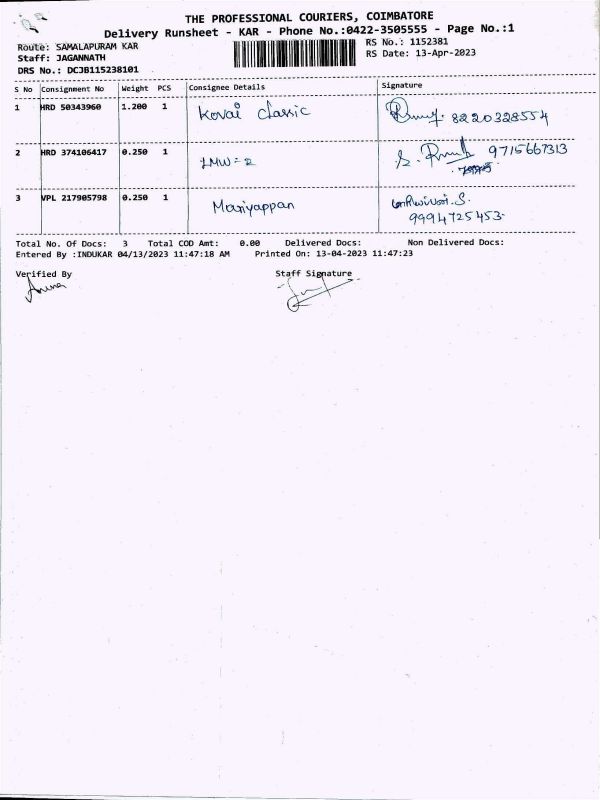 THE PROFESSIONAL COURIERS, COIMBATORE
Delivery Runsheet - KAR - Phone No.:0422-3505555 - Page No.:1
Route: SAMALAPURAM KAR
RS No.: 1152381
Staff: JAGANNATH
RS Date: 13-Apr-2023
DRS No.: DCJB115238101
S No Consignment No Weight PCS Consignee Details Signature
1 HRD 50343960 1.200 1 Kovai classic 8220328554
2 HRD 374106417 0.250 1 LMW=2 S. 9715667313
3 VPL 217905798 0.250 1 Mariyappan S.
9994725453
Total No. Of Docs: 3 Total COD Amt: 0.00 Delivered Docs: Non Delivered Docs:
Entered By :INDUKAR 04/13/2023 11:47:18 AM Printed On: 13-04-2023 11:47:23
Verified By Staff Signature